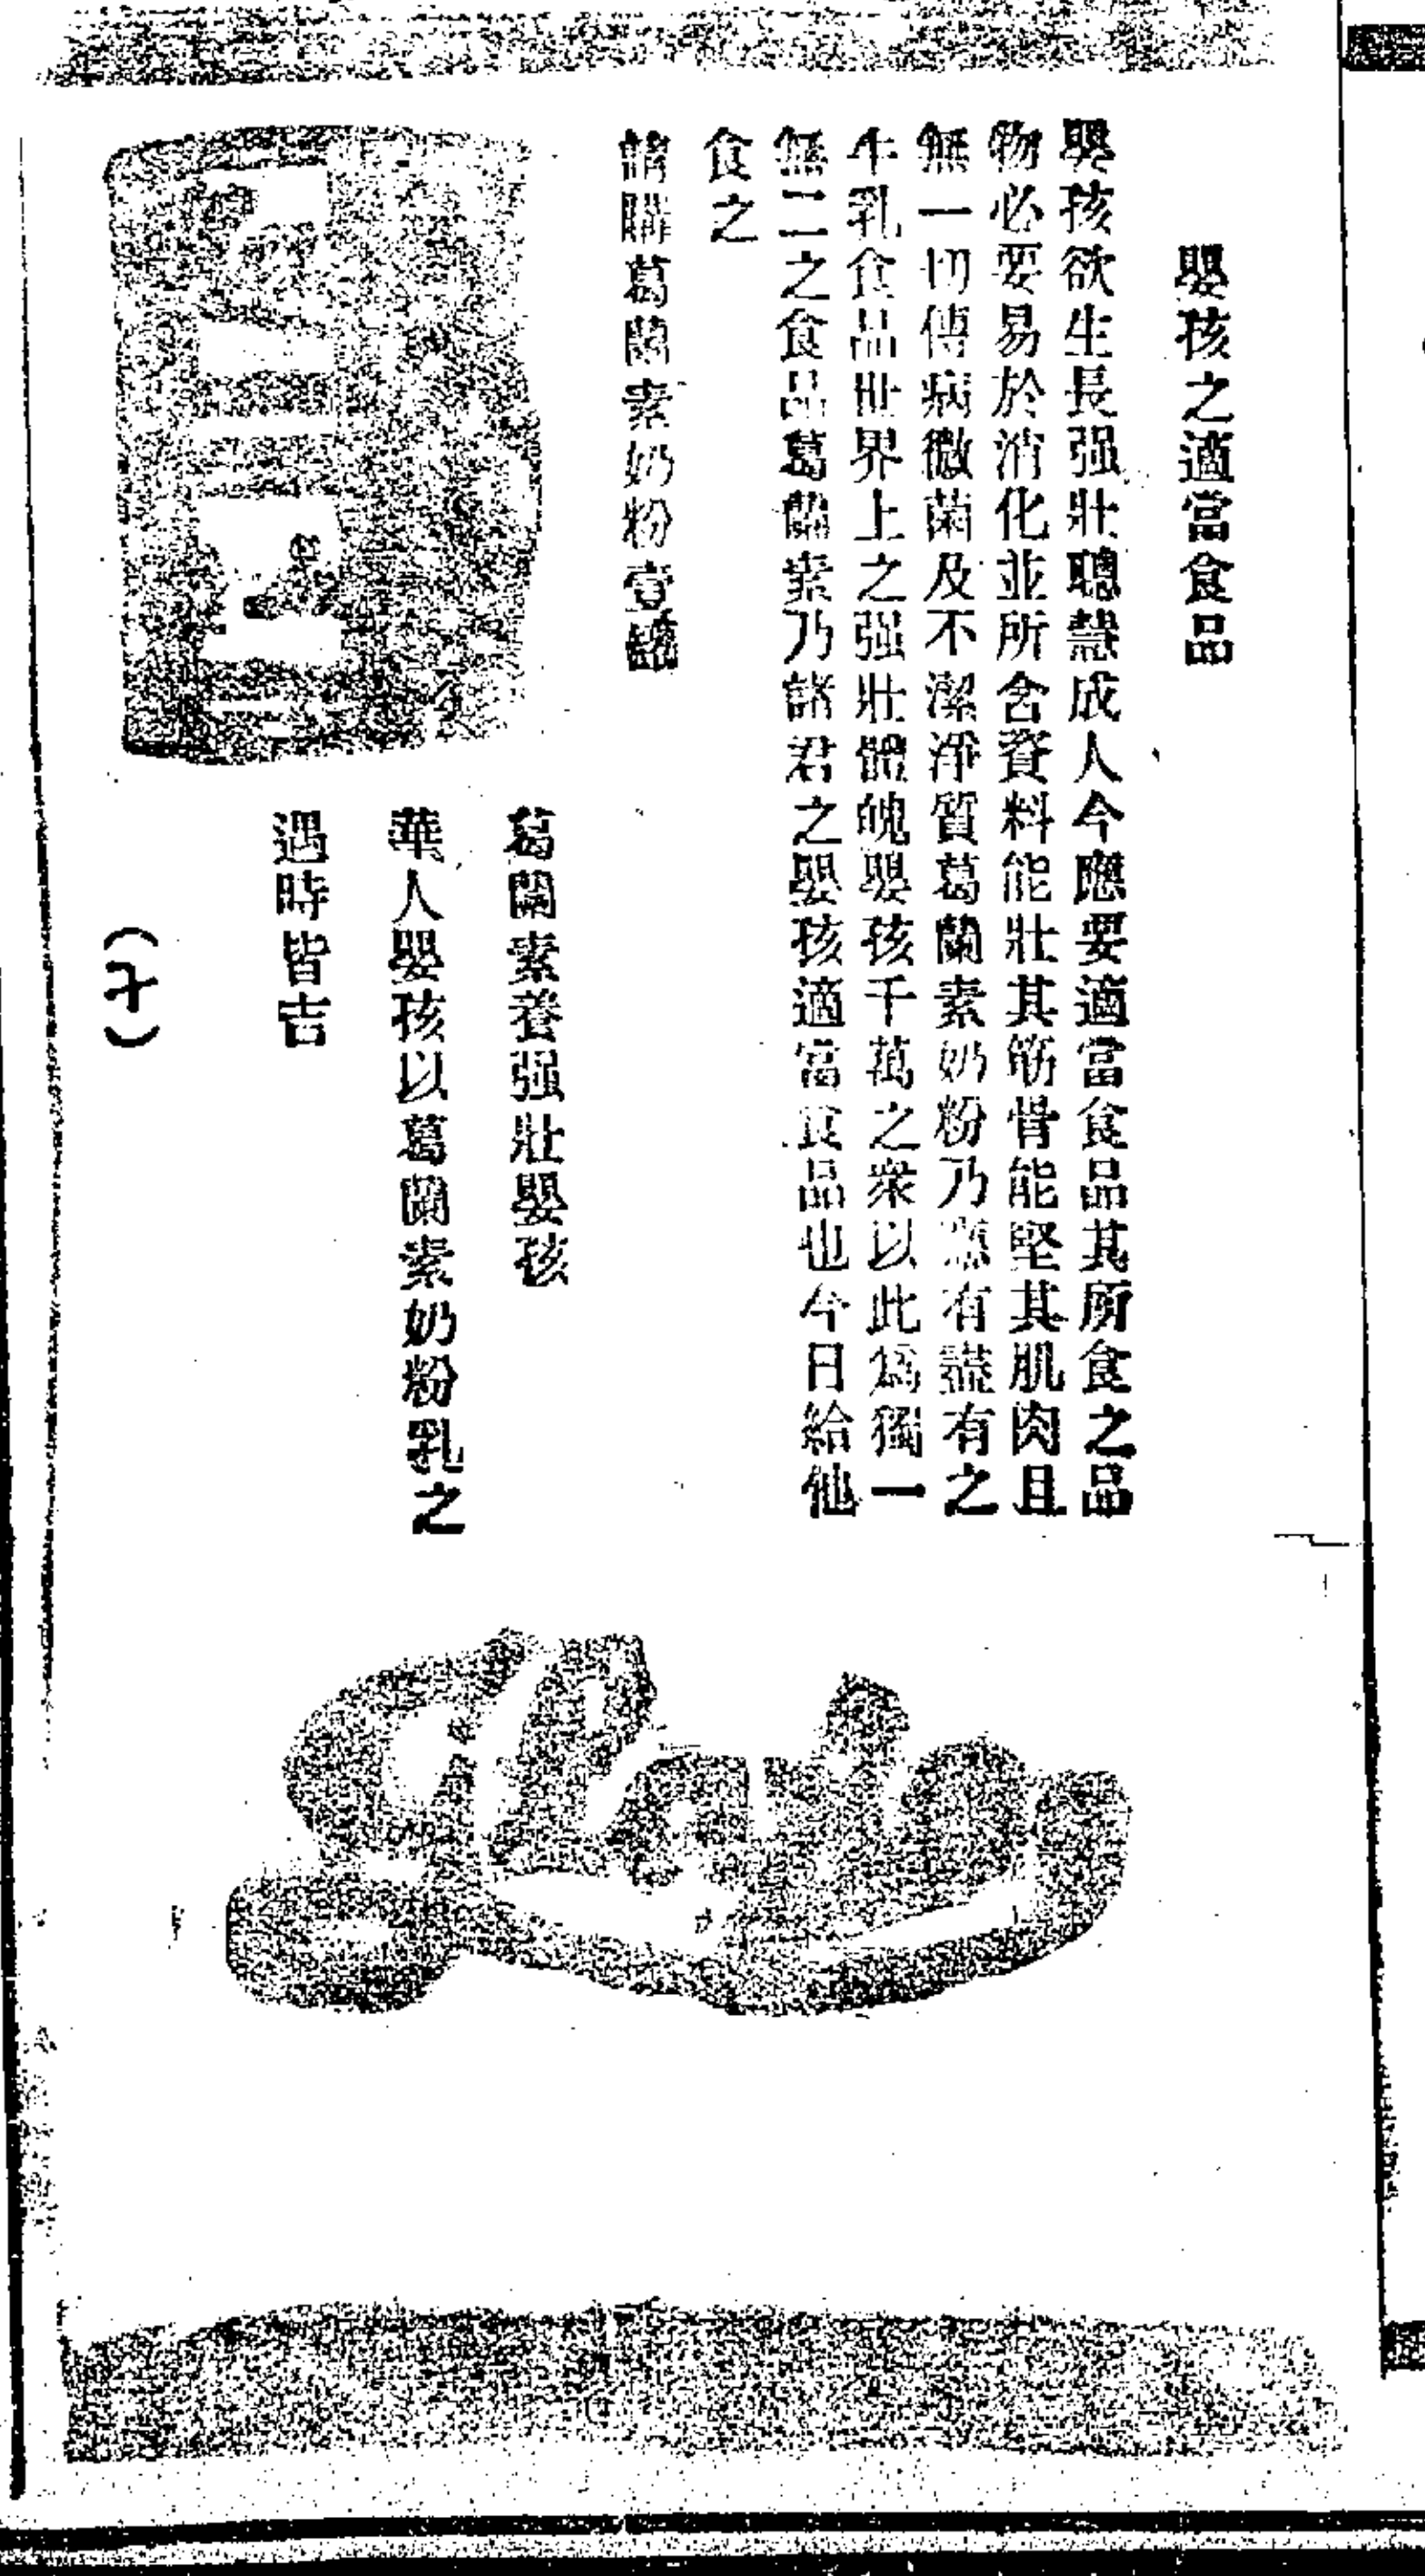 嬰孩之適當食品
嬰孩欲生長强壯聰慧成人今應要適當食品其所食之品
物必要易於消化並所含資料能壯其筋骨能堅其肌肉且
無一切傳病微菌及不潔淨質葛蘭素奶粉乃應有盡有之
牛乳食品世界上之强壯體魄嬰孩千萬之衆以此為獨一
無二之食品葛蘭素乃諸君之嬰孩適當食品也今日給他
食之
請購葛蘭素奶粉壹罐
葛蘭素養强壯嬰孩
華人嬰孩以葛蘭素奶粉乳之
遇時皆吉